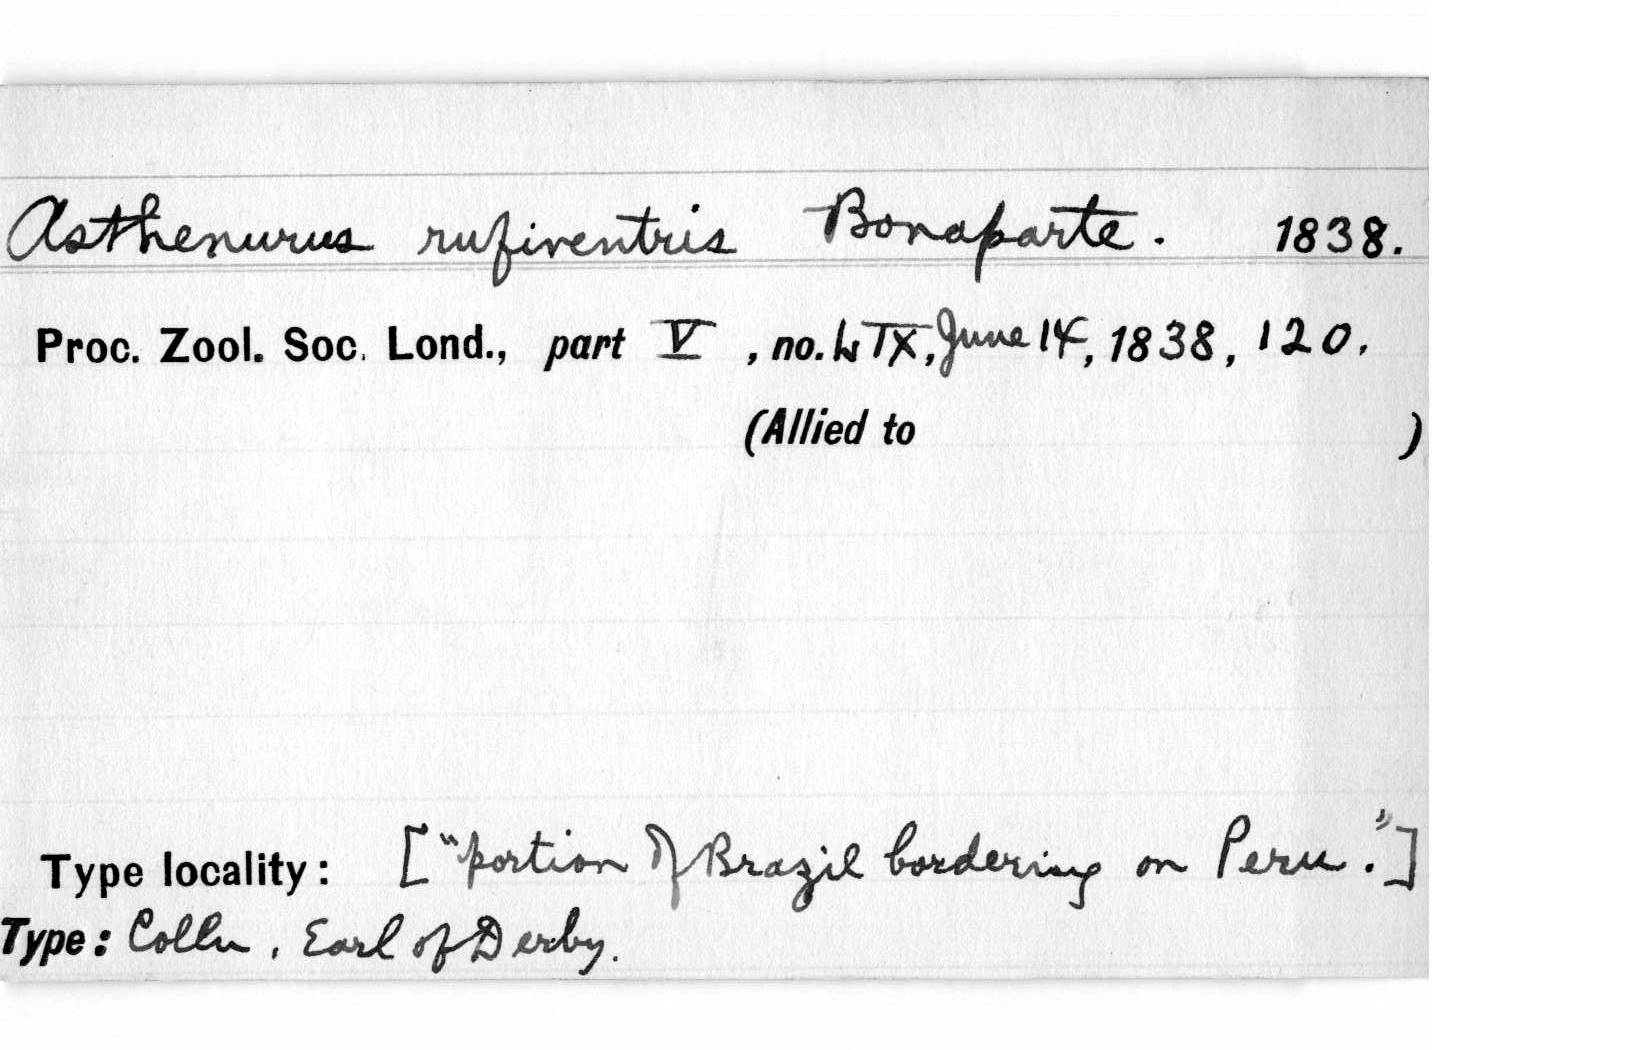 Asthenurus rufiventris Bonaparte. 1838.
Proc. Zool. Soc. Lond., part V, no. LIX, June 14, 1838, 120.
(Allied to )
Type locality: ["portion of Brazil bordering on Peru."]
Type: Colln, Earl of Derby.